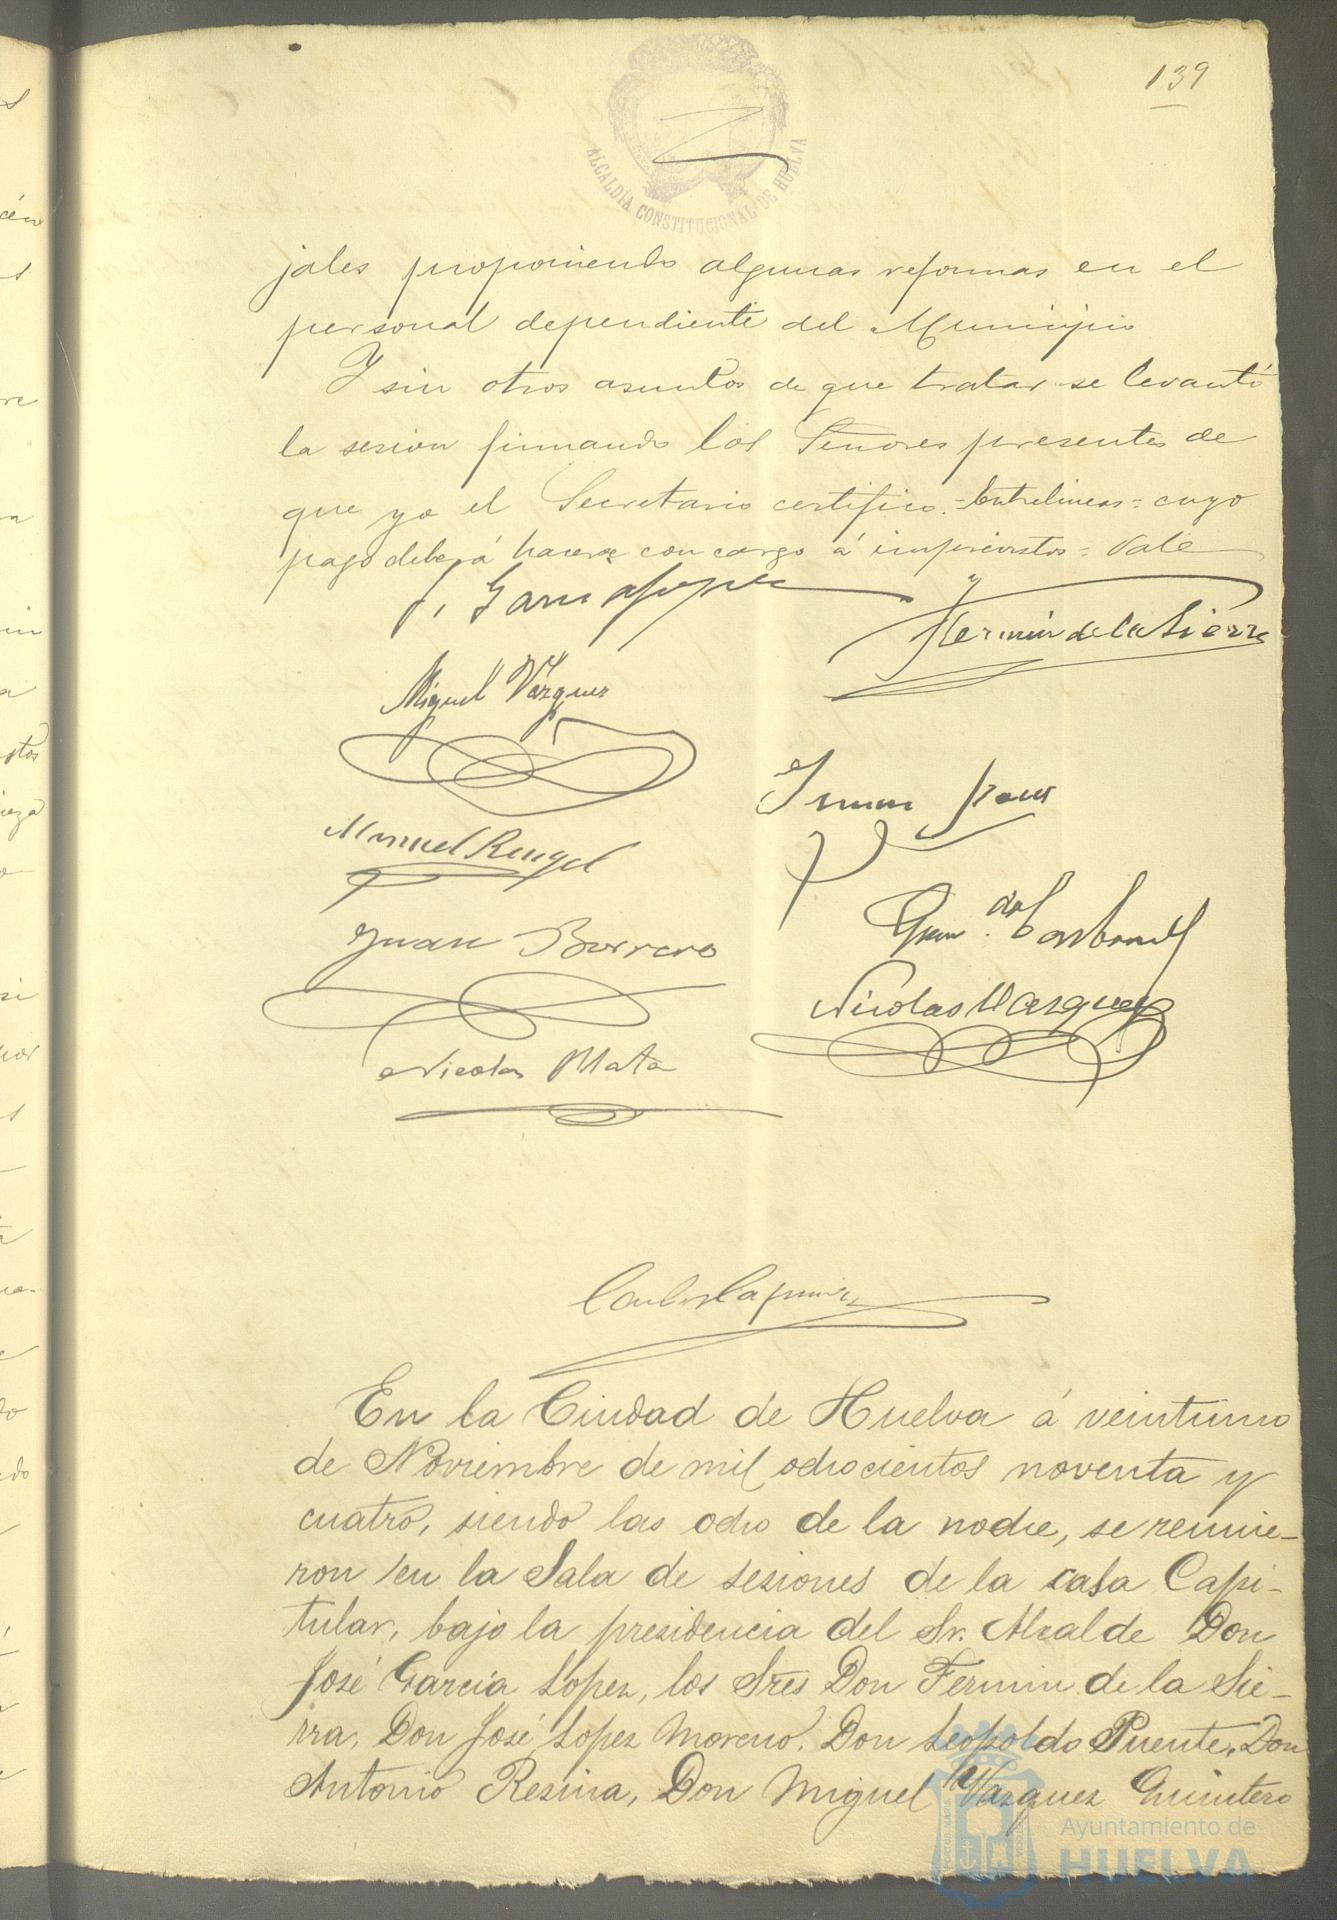 139
ALCALDÍA CONSTITUCIONAL DE HUELVA
jales proponiendo algunas reformas en el
personal dependiente del Municipio
Y sin otros asuntos de que tratar se levantó
la sesion firmando los Señores presentes de
que yo el Secretario certifico.=Entrelineas=cuyo
pago deberá hacerse con cargo á imprevistos=Vale
J. Garcia Lopez
Fermin de la Sierra
Miguel Vázquez
Manuel Rengel
Juan Borrero
Nicolas Vazquez
Nicolas Mata
En la Ciudad de Huelva á veintiuno
de Noviembre de mil ochocientos noventa y
cuatro, siendo las ocho de la noche, se reunie-
ron en la Sala de sesiones de la casa Capi-
tular, bajo la presidencia del Sr. Alcalde Don
José Garcia Lopez, los Sres Don Fermin de la Sie-
rra, Don José Lopez Moreno, Don Leopoldo Puente, Don
Antonio Resina, Don Miguel Vazquez Quintero
Ayuntamiento de
HUELVA